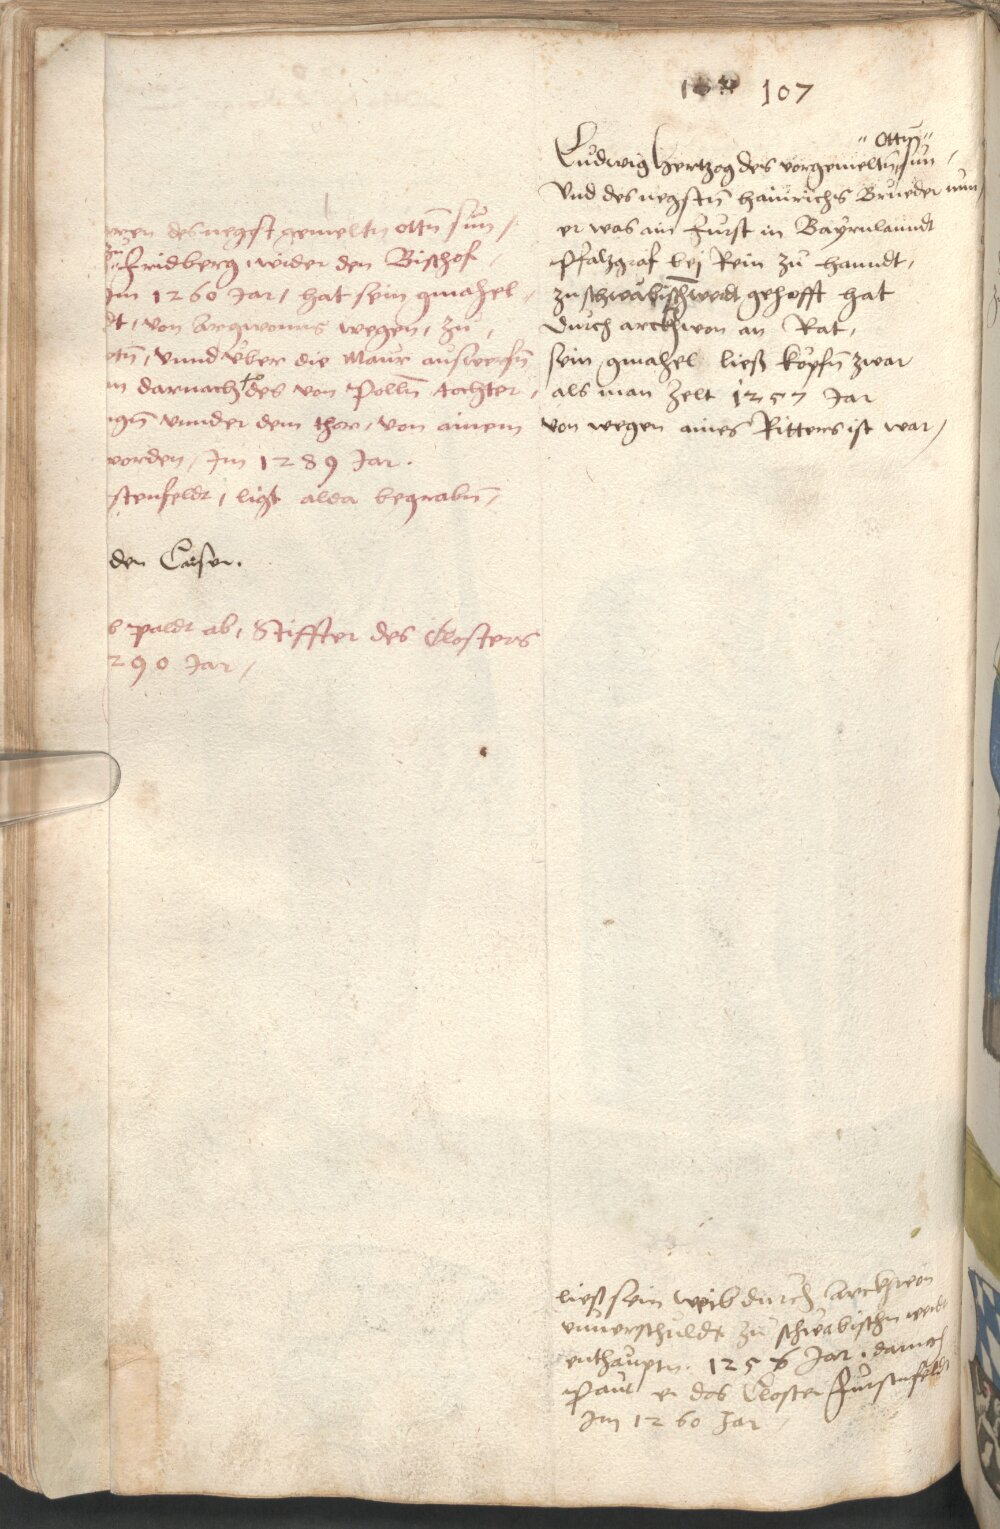 107
Ottn
Ludwig Hertzog des vorgemeltn sun /
Vnd des negstn hainrichs Brueder nun
er was ain Furst in Bayrnlanndt
Pfalzgraf bej Rein zu hanndt,
zu schwäbischwerdt gehofft hat
durch arckwon an Rat,
sein gmahel ließ köpfn zwar
als man zelt 1257 Jar
von wegen aines Ritters ist war /
ren des negst gemeltn ottn sun /
zu Fridberg, wider den Bischof /
Jm 1260 Jar, hat sein gmahel /
dt, von argwonns wegen, zu /
tn, vnnd vber die Maur auswerfn
n darnach des von Polln tochter /
gn vnnder dem thor, von ainem
worden, Jm 1289 Jar.
stenfeldt, ligt alda begrabn /
den Caiser.
paldt ab, Stiffter des Closters
290 Jar /
ließ sein weib durch arckhwon
vnuerschuldt zu schwäbischn werdt
enthauptn. 1256 Jar. darnach
Paut er das Closter Furstnfeldt
Jm 1260 Jar